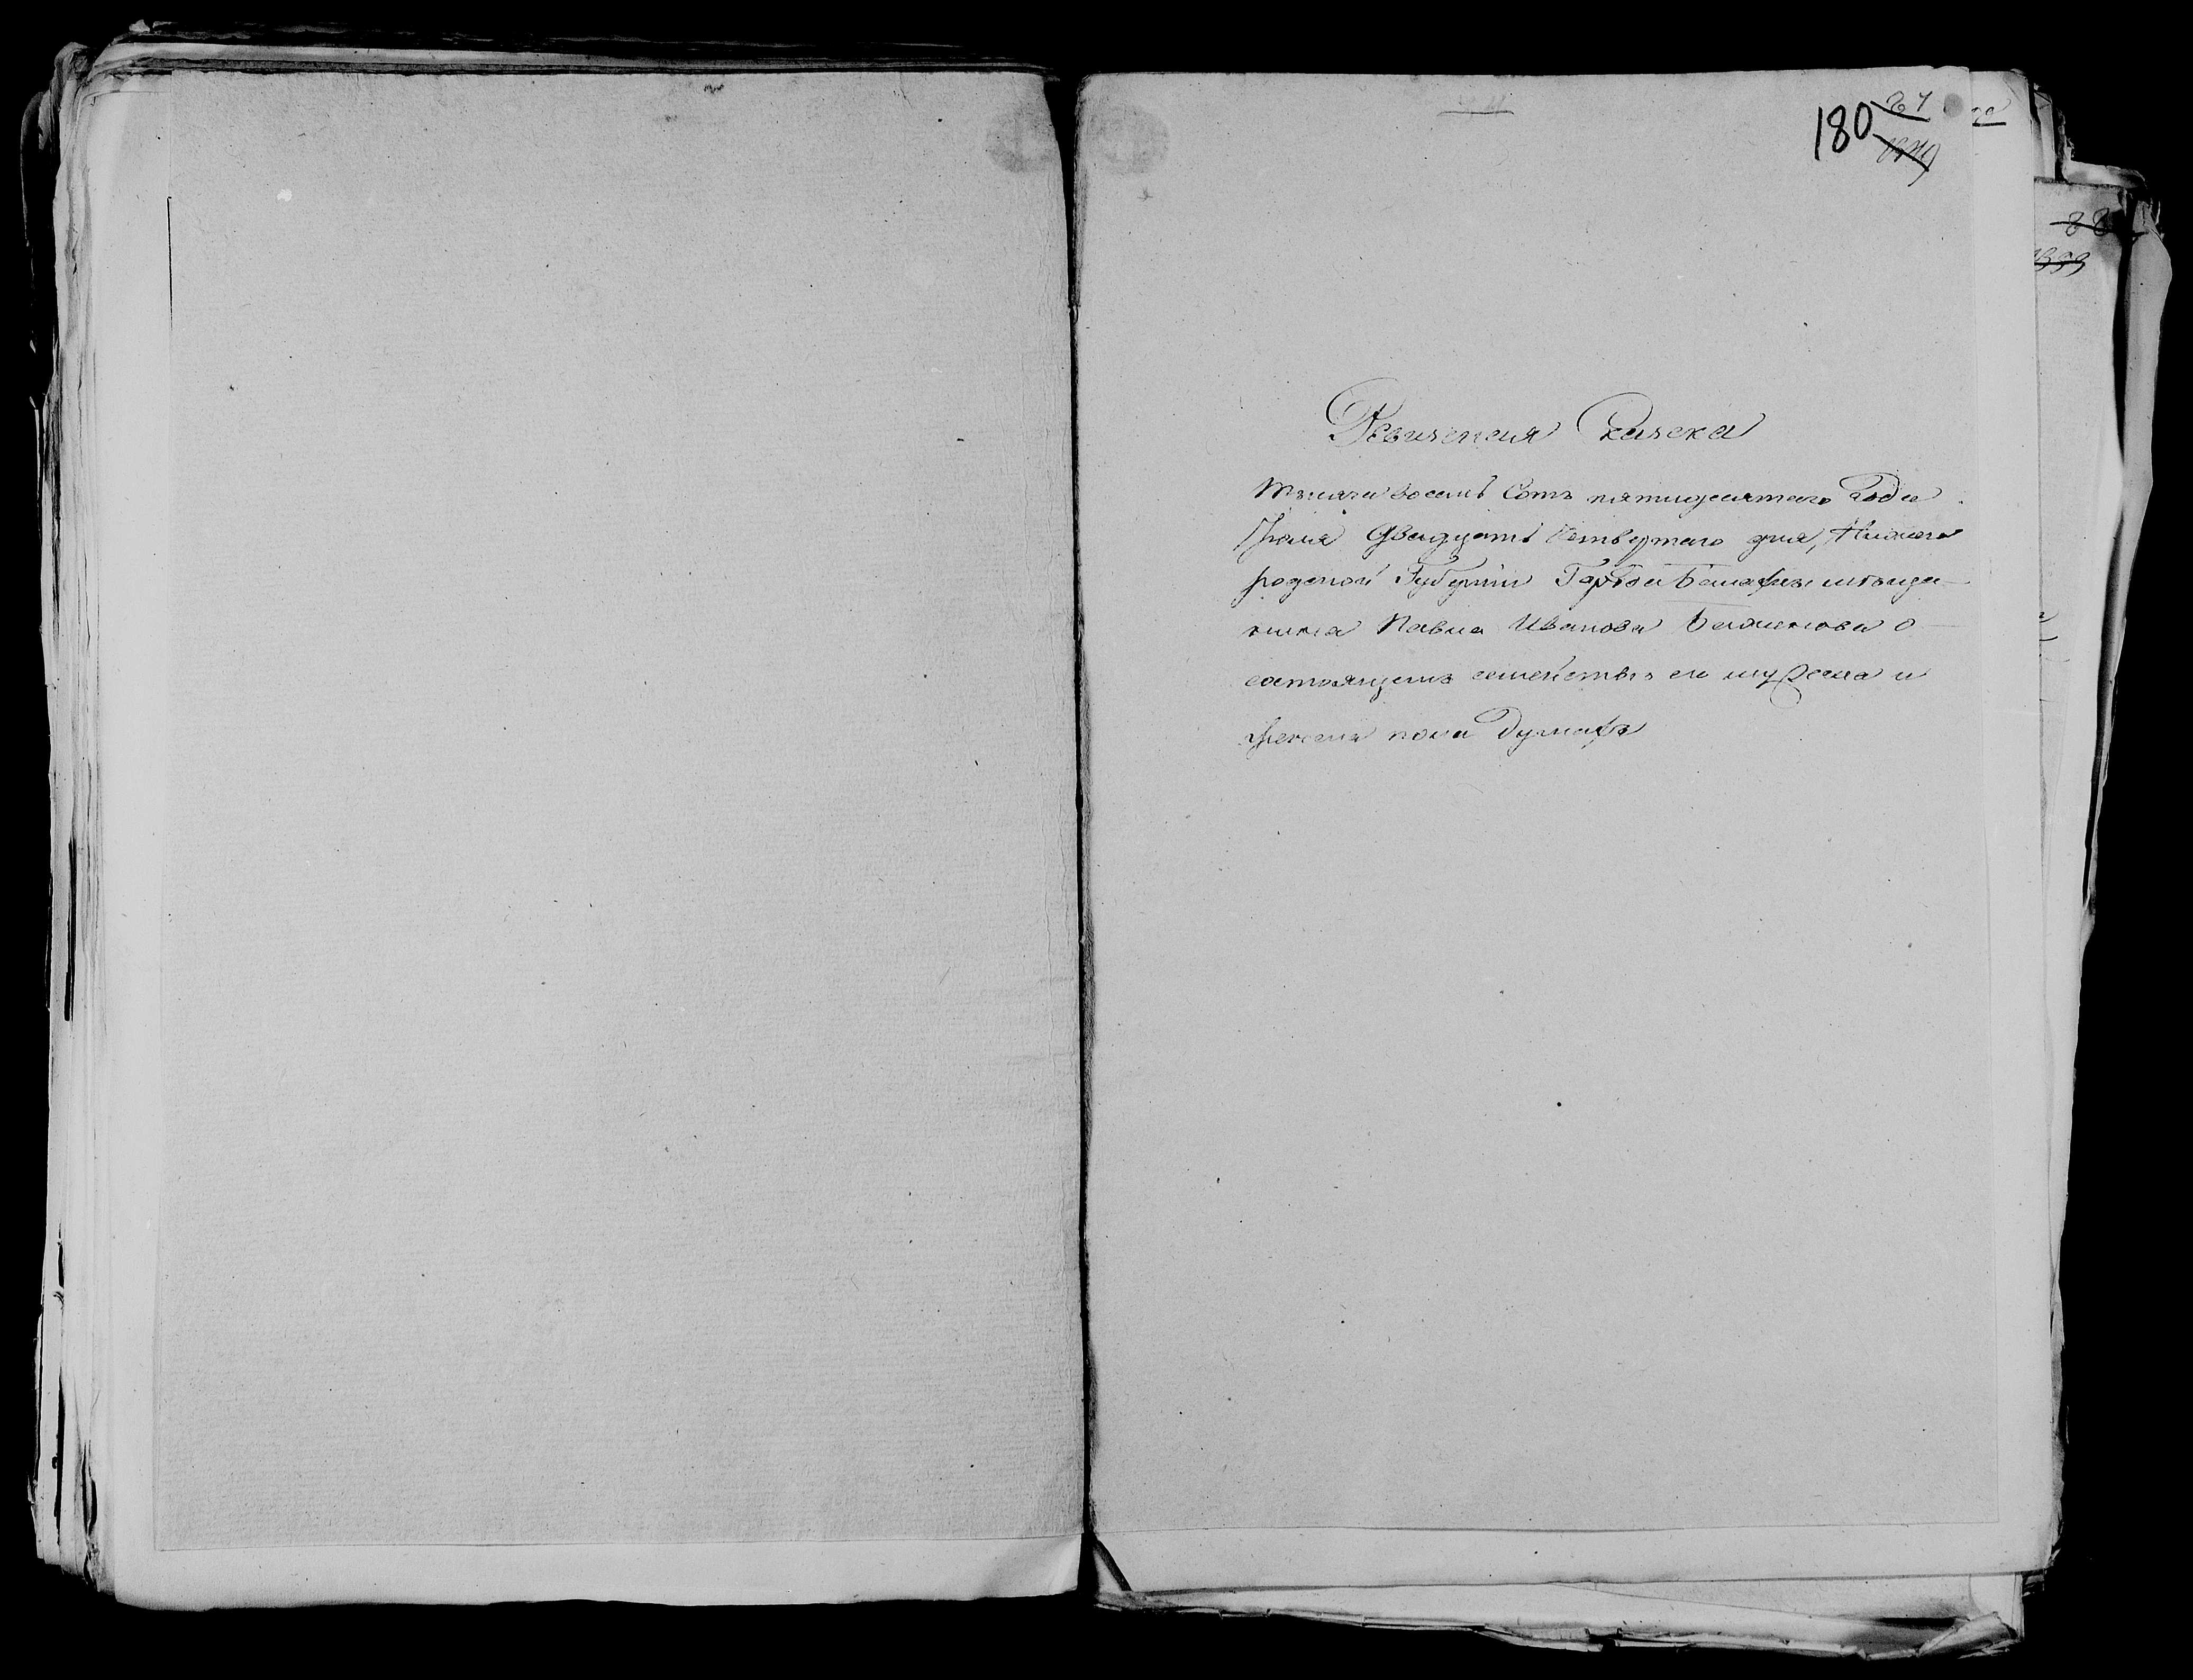 180
87
Ревизская Сказка
Тысяча восемь Сотъ пятидесятаго Года
Июля Двадцать Четвертаго дня, Нижего
родской Губернии Города Балахны мещани
нина Павла Иванова о
состоящемъ семействе его мужеска и
женска пола Душахъ
88